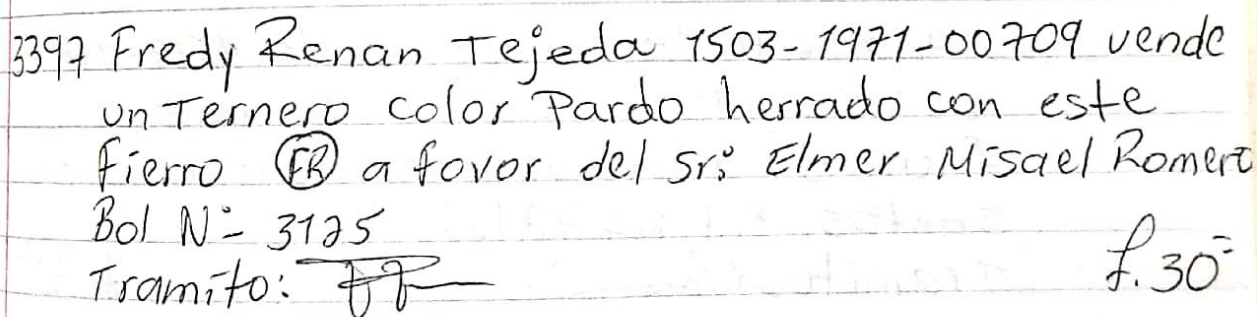 3397 Fredy Renan Tejeda 1503-1971-00709 vende
un Ternero color Pardo herrado con este
fierro FR a fovor del Sr: Elmer Misael Romero
Bol Nº 3125
Tramito:
f.30